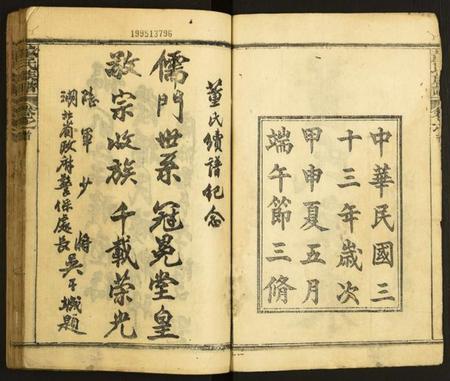 中華民國三
十三年歲次
甲申夏五月
端午節三脩
199513796
董氏續譜紀念
儒門世系冠冕堂皇
敬宗收族千載榮光
陸軍少將
湖北省政府警保處長吳城題